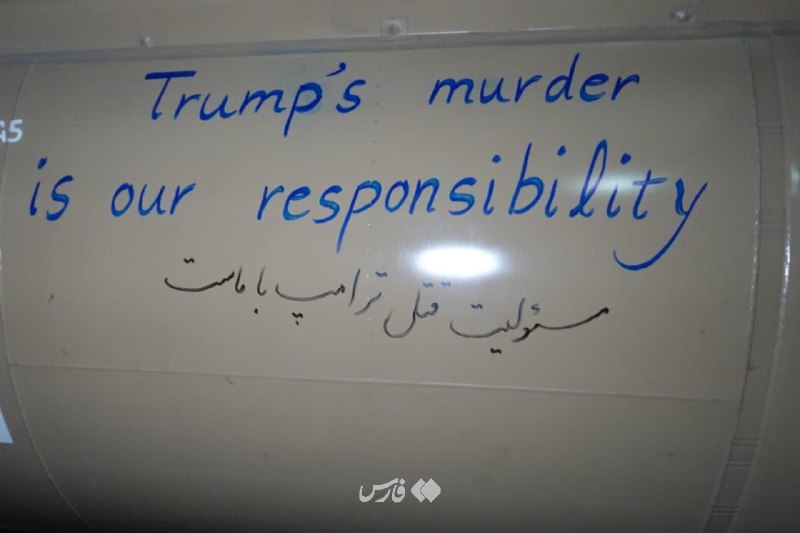 Trump's murder
is our responsibility
مسئولیت قتل ترامپ با ماست
G5
فارس